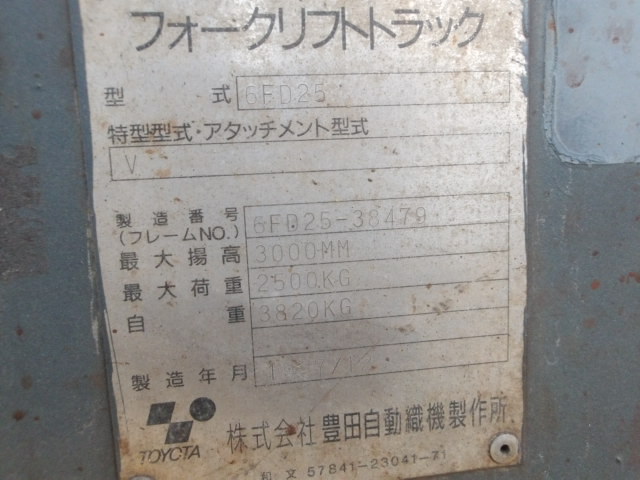 フォークリフトトラック
型 式 6FD25
特型型式・アタッチメント型式
V
製造番号 6FD25-38479
(フレームNO.)
最大揚高 3000MM
最大荷重 2500KG
自重 3820KG
製造年月
TOYOTA
株式会社豊田自動織機製作所
和文 57841-23041-71